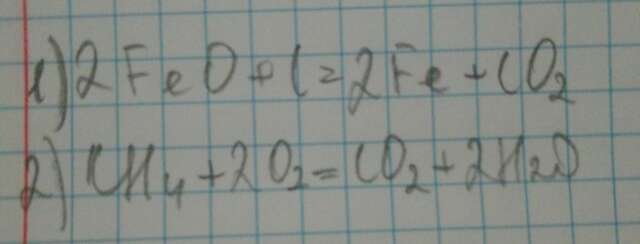 1) 2FeO + C = 2Fe + CO₂
2) CH₄ + 2O₂ = CO₂ + 2H₂O